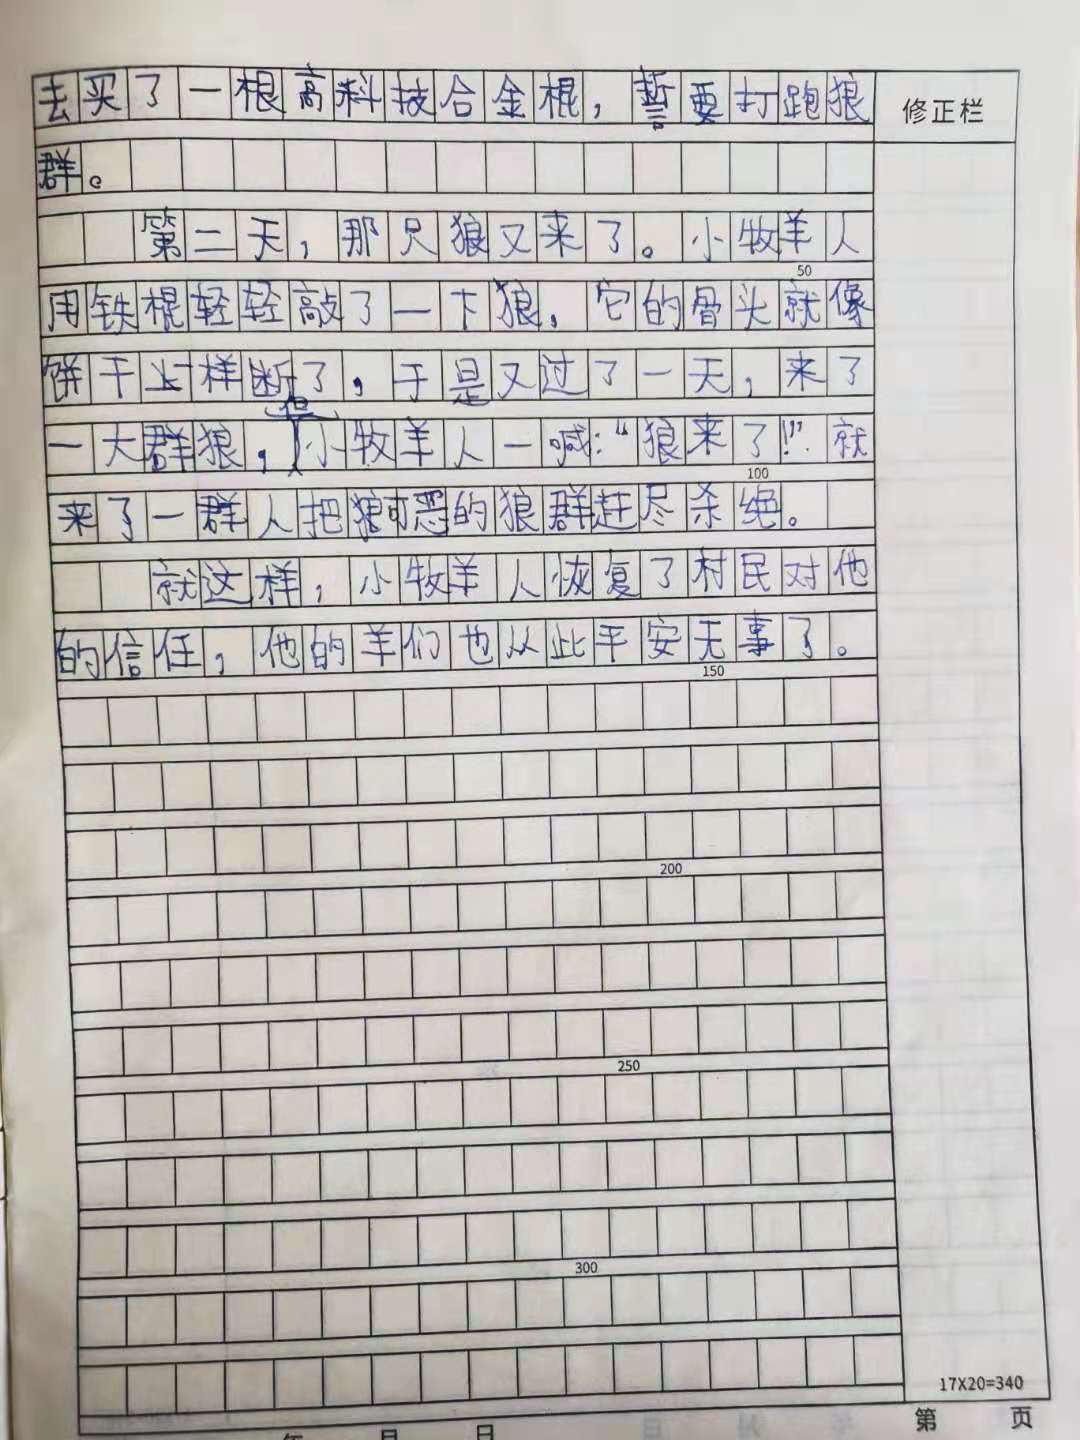 去买了一根高科技合金棍，誓要打跑狼
修正栏
群。
第二天，那只狼又来了。小牧羊人
50
用铁棍轻轻敲了一下狼，它的骨头就像
饼干一样断了，于是又过了一天，来了
但
一大群狼，小牧羊人一喊：“狼来了！”就
100
来了一群人把狼可恶的狼群赶尽杀绝。
就这样，小牧羊人恢复了村民对他
的信任，他的羊们也从此平安无事了。
150
200
250
300
17X20=340
第 页
年 月 日